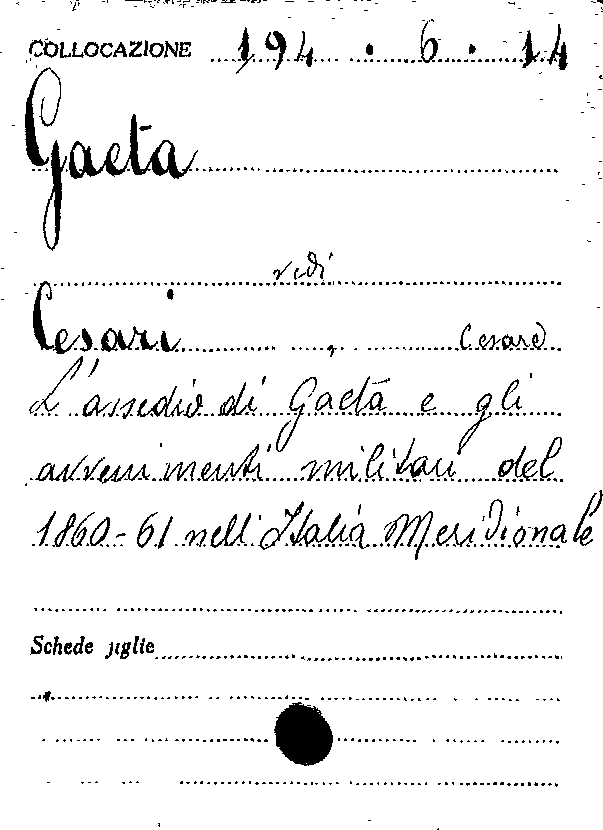 COLLOCAZIONE 194 . 6 . 14
Gaeta
vedi
Cesari , Cesare
L'assedio di Gaeta e gli
avvenimenti militari del
1860-61 nell'Italia Meridionale
Schede figlie